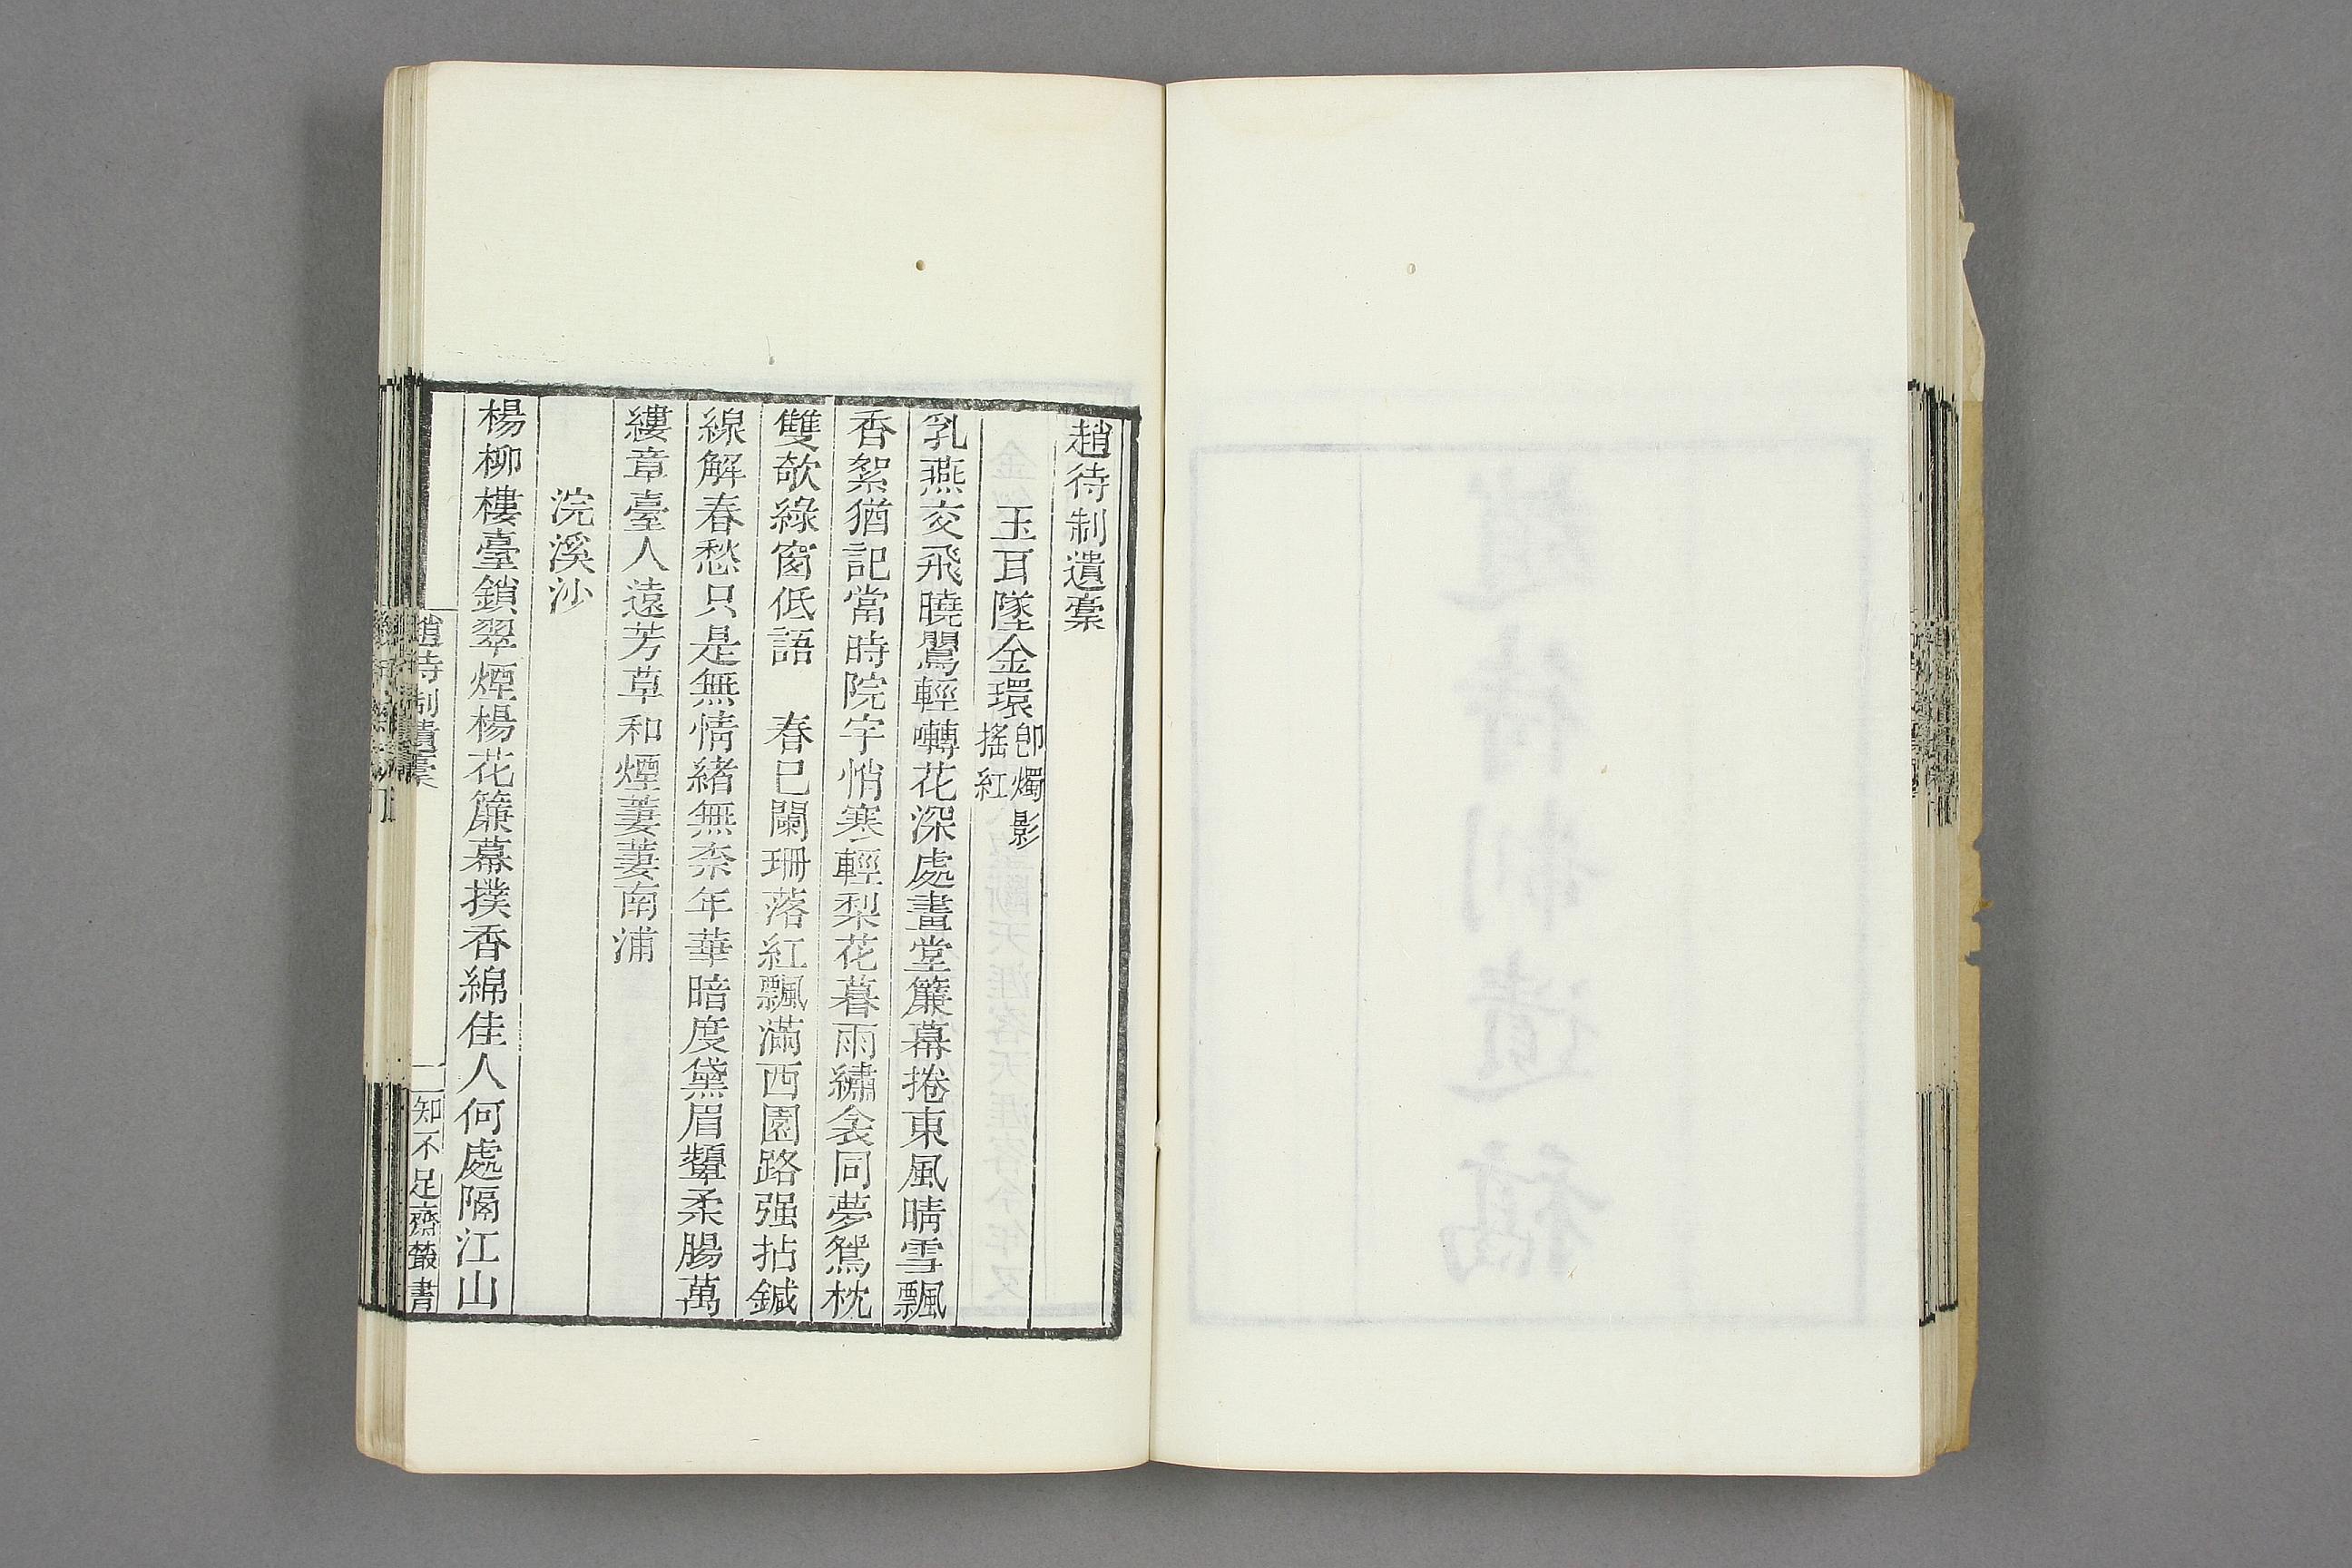 趙待制遺稾
玉耳墜金環卽燭影
搖紅
乳燕交飛曉鶯輕囀花深處畫堂簾幕捲東風晴雪飄
香絮猶記當時院宇悄寒輕梨花暮雨繡衾同夢鴛枕
雙欹綠窗低語　春已闌珊落紅飄滿西園路强拈鍼
線解春愁只是無情緒無柰年華暗度黛眉顰柔腸萬
縷章臺人遠芳草和煙萋萋南浦
浣溪沙
楊柳樓臺鎖翠煙楊花簾幕撲香綿佳人何處隔江山
趙待制遺稾
一
知不足齋叢書